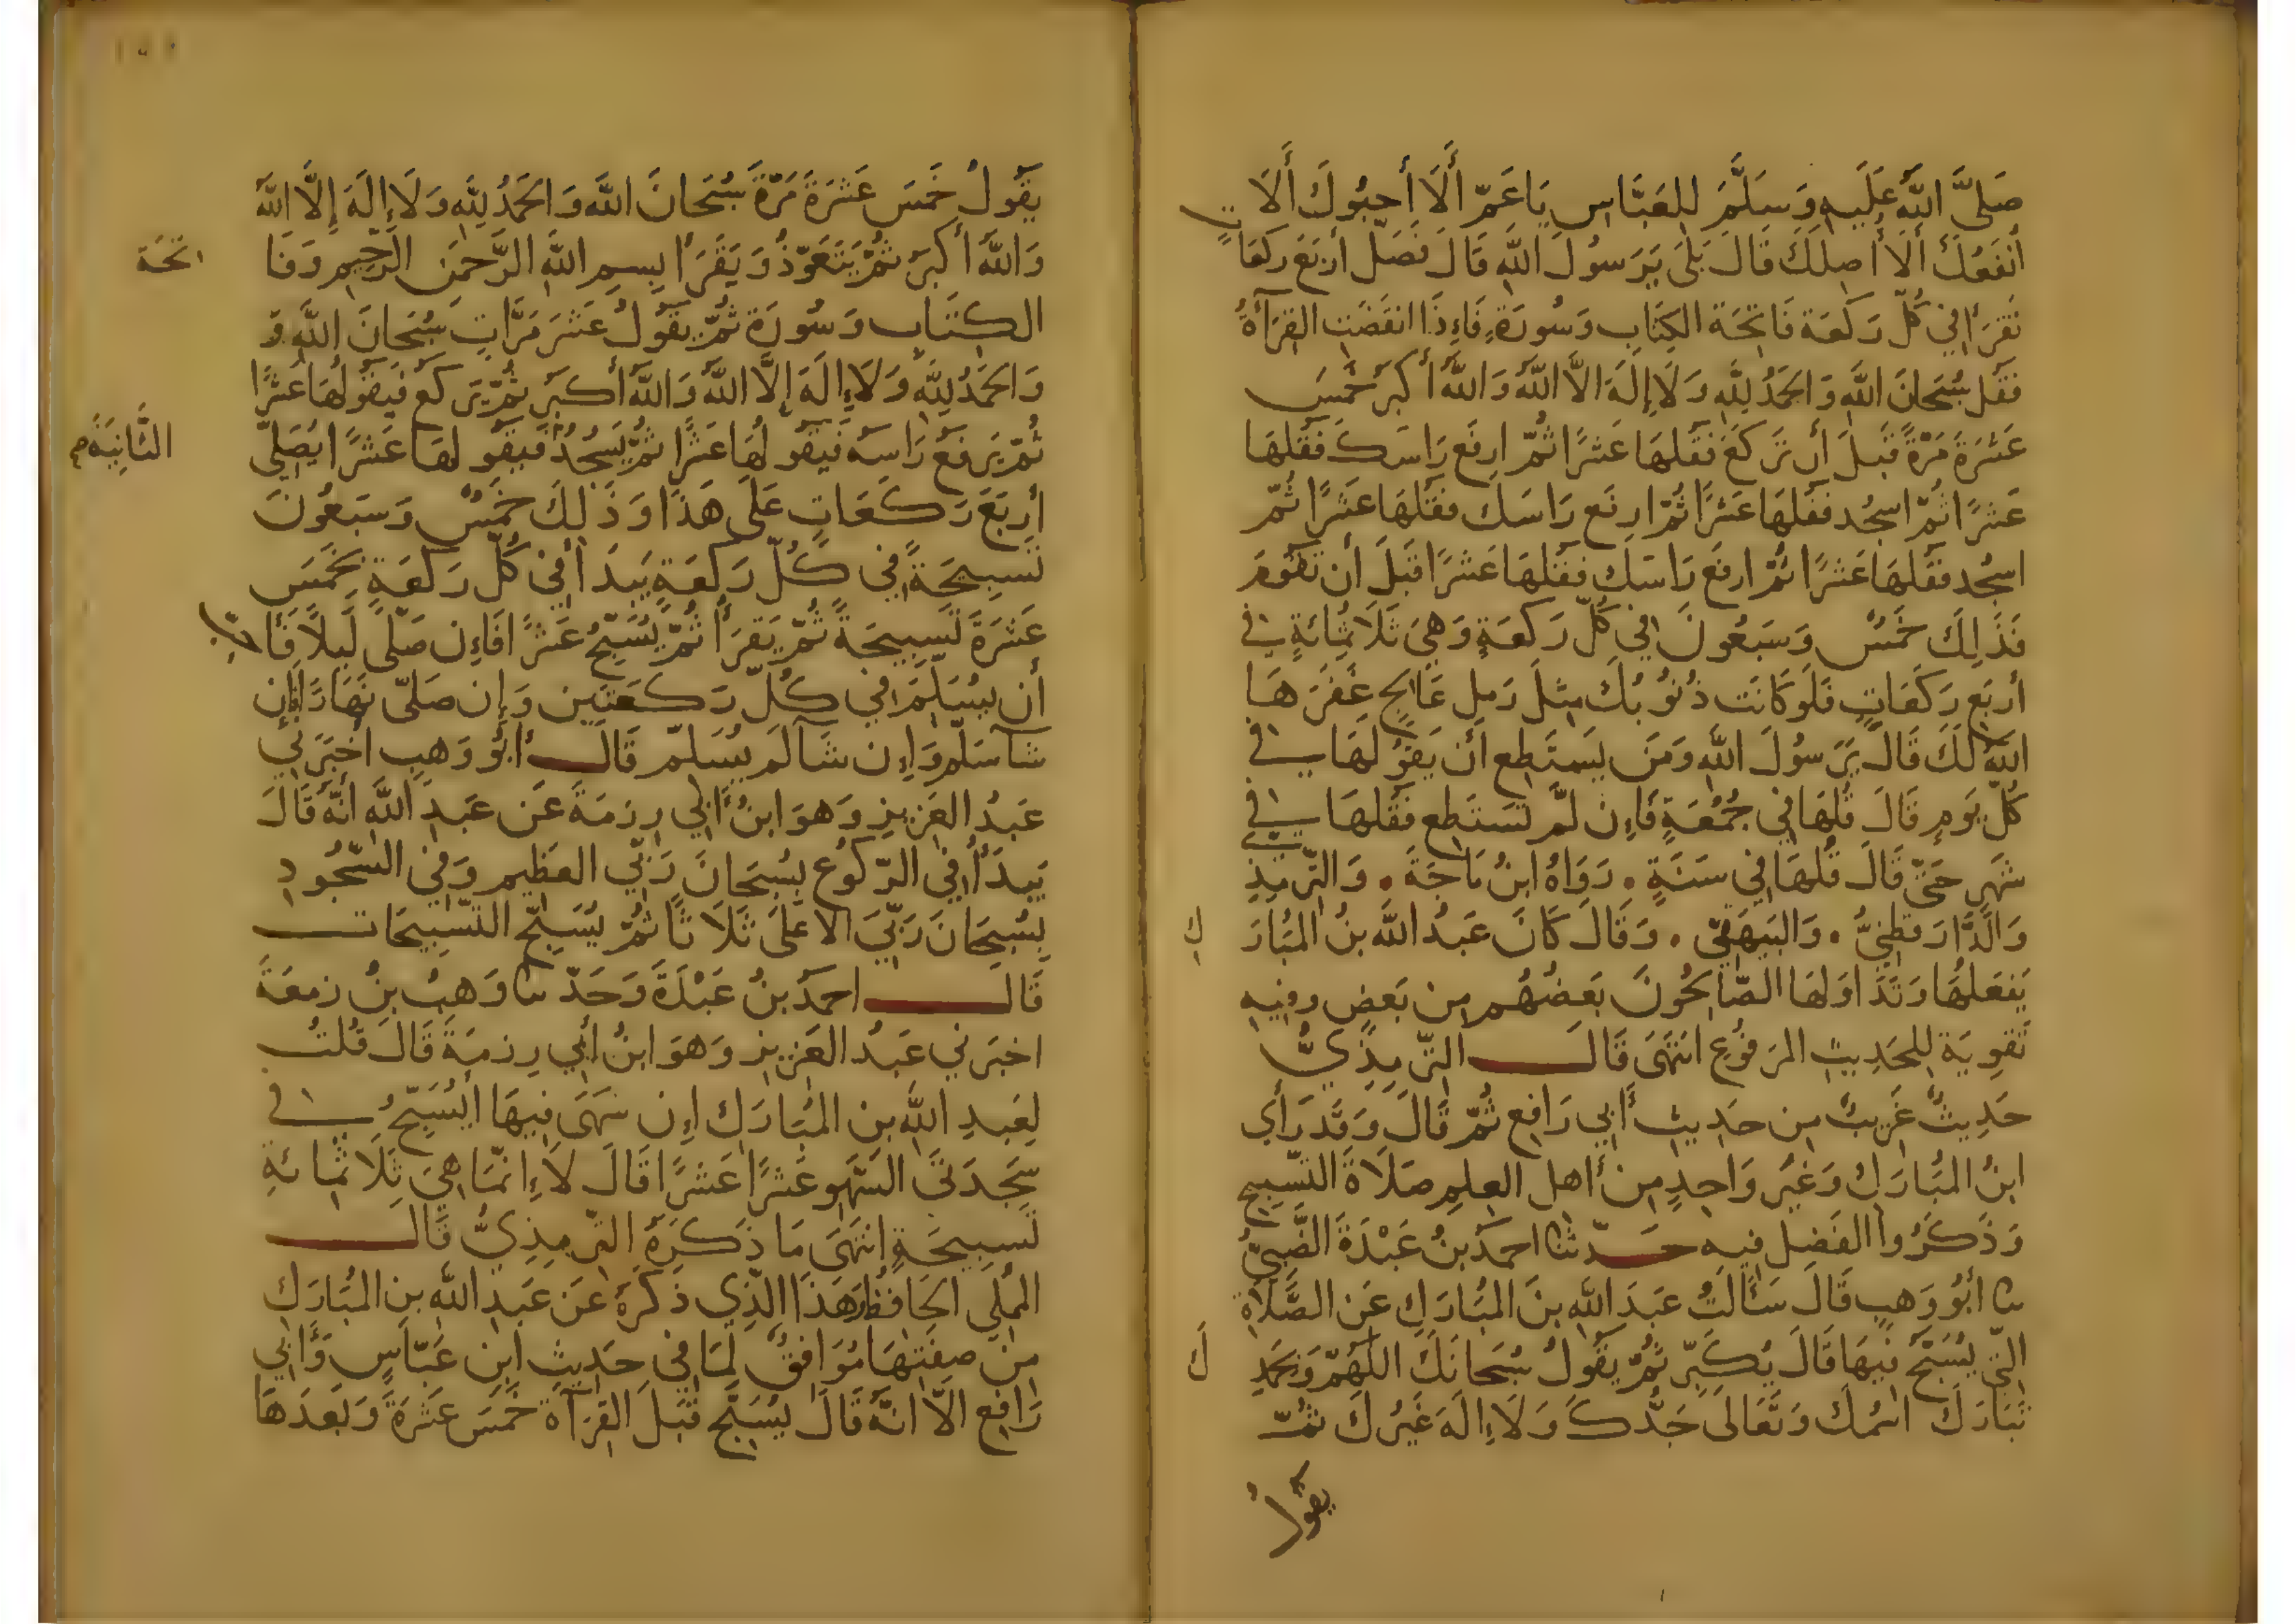 صَلىَّ اللَّهُ عَلَيهِ وَسَلَّمَ لِلعَبَّاسِ يَا عَمّ أَلَا أَحبُوكَ أَلَا
أَنفَعُكَ أَلَا أَصِلُكَ قَالَ بَلَى يَرَسُولَ اللَّهِ قَالَ فَصَلّ أَربَعَ رَكعَاتٍ
تَقرَأ في كُلّ رَكعَة فَاتِحَة الكِتَابِ وَسُورَةٍ فَإِذَا انقَضَتِ القِرَآءَةُ
فَقُل سُبحَانَ اللَّهِ وَالحَمدُ لِلَّهِ وَلَا إِلَهَ الَّا اللَّهُ وَاللَّهُ أَكبَر خَمسَ
عَشرَةَ مَرَّةً قَبلَ أَن تَركَعَ فَقُلهَا عَشرًا ثُمّ ارفَع رَاسَكَ فَقُلهَا
عَشرًا ثُمّ اسجُد فَقُلهَا عَشرًا ثُمّ ارفَع رَاسَكَ فَقُلهَا عَشرًا ثُمّ
اسجُد فَقُلهَا عَشرًا ثُمّ ارفَع رَاسَكَ فَقُلهَا عَشرًا قَبلَ أَن تَقُومَ
فَذَلِكَ خَمسٌ وَسَبعُونَ في كُلّ رَكعَةٍ وَهيَ ثَلَاثُمِائَةٍ في
أَربَع رَكَعَاتٍ فَلَو كَانَت ذُنُوبُكَ مِثلَ رَملِ عَالجٍ غَفَرَهَا
اللَّهُ لَكَ قَالَ يَرَسُولَ اللَّهِ وَمَن يَستَطِع أَن يَقُولَهَا في
كُلّ يَومٍ قَالَ قُلهَا في جُمُعَةٍ فَإِن لَّم تَستَطِع فَقُلهَا في
شَهرٍ حَتّى قَالَ قُلهَا في سَنَةٍ . رَوَاهُ ابنُ مَاجَةَ . وَالتِّرمِذِيّ
وَالدَّارَقطنِيُّ . وَالبَيهَقِيّ . وَقَالَ كَانَ عَبدُ اللَّهِ بنُ المُبَارَكِ
يَفعَلُهَا وَتَدَاوَلَهَا الصَّالِحُونَ بَعضُهُم مِن بَعضٍ وفِيهِ
تَقوِيَة لِلحَدِيثِ المَرفُوعِ انتَهَى قَالَ التِّرمِذِيُّ
حَدِيثٌ غَرِيبٌ مِن حَدِيثِ أَبي رَافِعٍ ثُمّ قَالَ وَقَد رَأَي
ابنُ المُبَارَكِ وَغَيرُ وَاحِدٍ مِن أَهلِ العِلمِ صَلَاةَ التّسبِيحِ
وَذَكَرُوا الفَضلَ فِيهِ حَدّثنَا احمَدُ بنُ عَبْدَةَ الضَّبِيُّ
نا أَبُو وَهبٍ قَالَ سَأَلتُ عَبدَ اللَّهِ بنَ المُبَارَكِ عَن الصَّلَاةِ
التِي يُسَبَّح فِيهَا قَالَ يُكَبِّر ثُمّ يَقُولُ سُبحَانَكَ اللَّهُمّ وَبحَمدِكَ
تَبَارَكَ اسمُكَ وَتَعَالَى جَدُّكَ وَلَا إِلَهَ غَيرُكَ ثُمّ
يَقُولُ
يَقُولُ خَمسَ عَشرَةَ مَرّةً سُبحَانَ اللَّهِ وَالحَمدُ لِلَّهِ وَلَا إِلَهَ إِلَّا اللَّهُ
وَاللَّهُ أَكبَرُ ثُمّ يَتَعَوّذُ وَيَقرَأ بِسمِ اللَّهِ الرَّحمَنِ الرَّحِيمِ وَفَاتحَة
الكِتَابِ وَسُورَةٍ ثُمّ يَقُولُ عَشرَ مَرَّاتٍ سُبحَانَ اللَّهِ وَ
وَالحَمدُ لِلَّهِ وَلَا إِلَهَ إِلَّا اللَّهُ وَاللَّهُ أَكبَر ثُمّ يَركَع فَيَقُولُهَا عَشرًا
ثُمّ يَرفَع رَاسَه فَيَقُولُهَا عَشرًا ثُمّ يَسجُدُ فَيَقُولُهَا عَشرًا يُصَلِّي
الثَّانِيَة م
أَربَعَ رَكَعَاتٍ عَلَى هَذَا وَذَلِكَ خَمسٌ وَسَبعُونَ
تَسبِيحَةً في كُلّ رَكعَةٍ يَبدَأ في كُلّ رَكعَةٍ بخَمسَ
عَشرَةَ تَسبِيحَةً ثُمّ يَقرَأ ثُمّ يُسَبّحُ عَشرًا فَإِن صَلّى لَيلاً فَأَحَبّ
أَن يُسَلِّمَ في كُلّ رَكعَتَين وَإِن صَلّى نَهَارًا فَإِن
شَآ سَلّم وَإِن شَآ لَم يُسَلّم قَالَ أَبُو وَهبٍ اخبَرَني
عَبدُ العَزِيزِ وَهوَ ابنُ أَبي رِزمَةَ عَن عَبدِ اللَّهِ أَنَّهُ قَالَ
يَبدَأُ في الرّكُوعِ بسُبحَانَ رَبّي العَظِيمِ وَفي السّجُودِ
بِسُبحَانَ رَبّيَ الاعلَى ثَلَاثًا ثُمّ يُسَبّح التّسبِيحَاتِ
قَالَ احمَدُ بنُ عَبْدَةَ وَحَدّثنا وَهبُ بنُ زمعَةَ
اخبَرَني عَبدُ العَزِيزِ وَهوَ ابنُ أَبي رِزمَةَ قَالَ قُلتُ
لِعَبدِ اللَّهِ بنِ المُبَارَكِ إِن سَهَى فِيهَا أَيُسَبّحُ في
سَجدَتَي السَّهو عَشرًا عَشرًا قَالَ لَا إِنّمَا هِيَ ثَلَاثُمِائَةِ
تَسبِيحَةٍ انتَهَى مَا ذَكَرَهُ التِّرمِذِيُّ قَالَ
المُملِي الحَافِظُ وَهَذَا الّذِي ذَكَرَهُ عَن عَبدِ اللَّهِ بنِ المُبَارَكِ
مِن صِفَتِهَا مُوَافِقٌ لِمَا في حَدِيثِ ابنِ عَبّاسٍ وَأَبي
رَافِعٍ الّا انّهُ قَالَ يُسَبّح قَبلَ القِرَآءَة خَمسَ عَشرَةَ وَبَعدَهَا